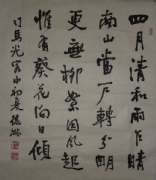 四月清和雨乍晴
南山當戶轉分明
更無柳絮因風起
惟有葵花向日傾
司馬光客中初夏